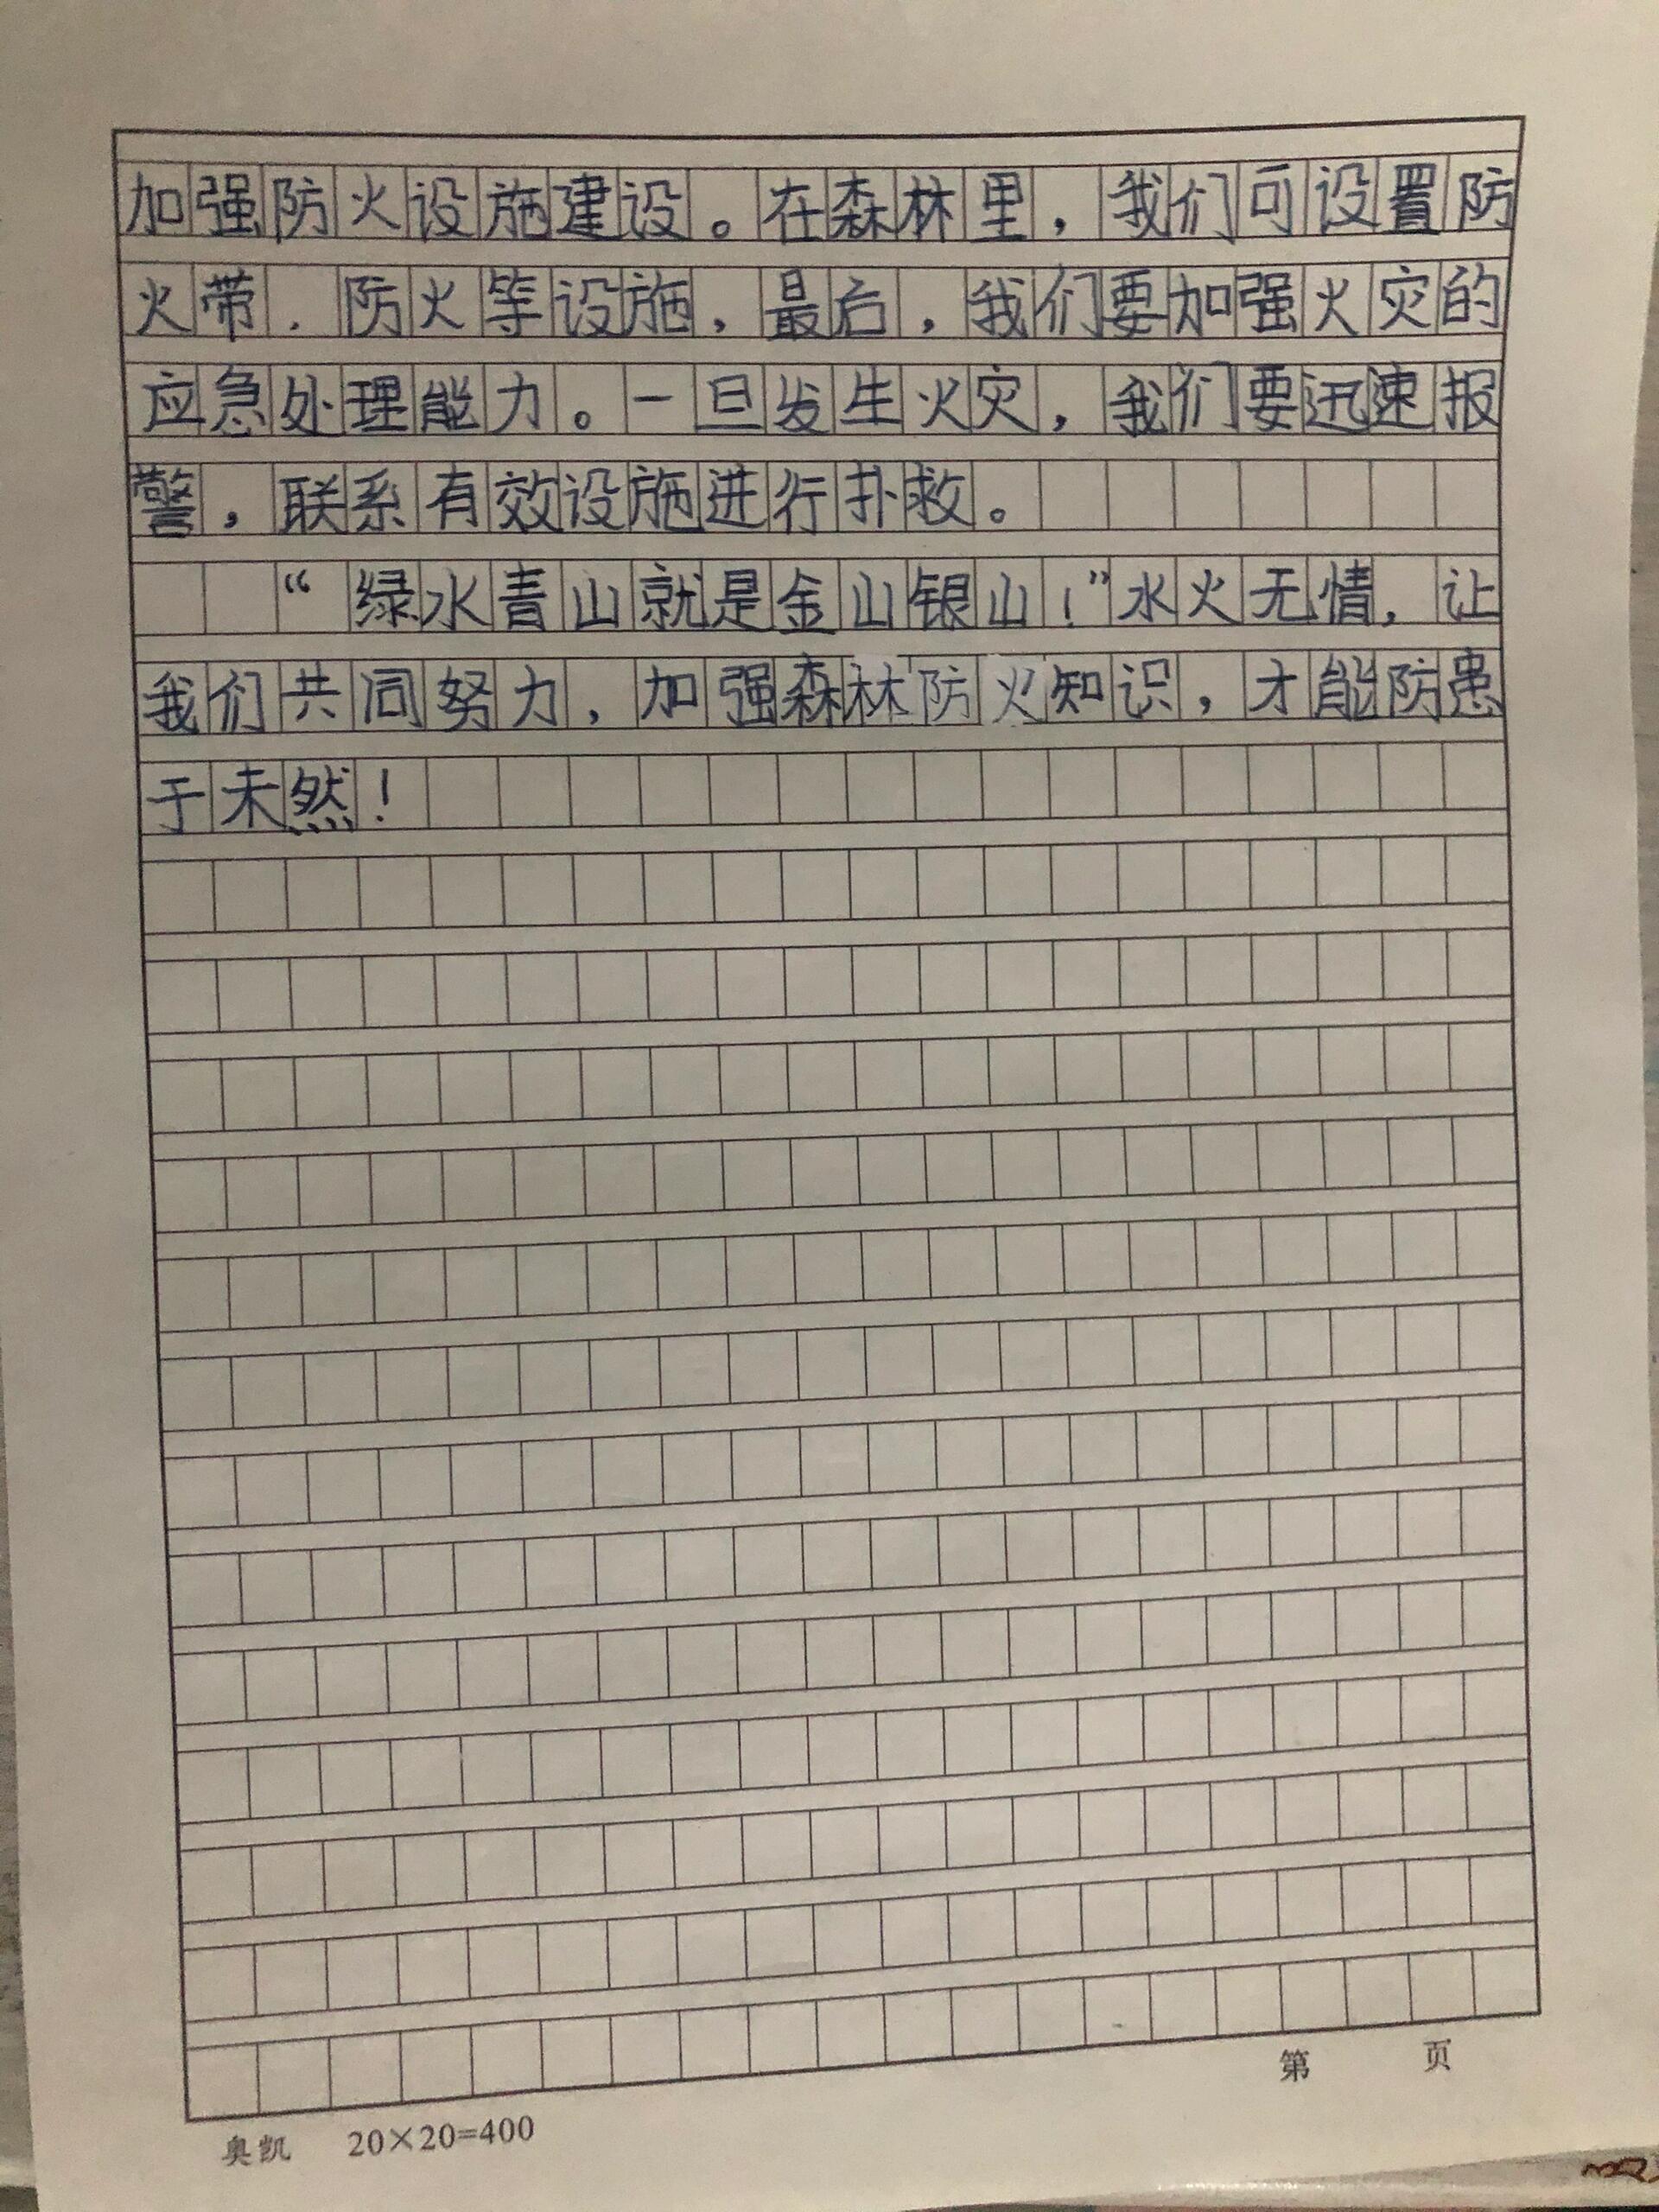 加强防火设施建设。在森林里，我们可设置防
火带．防火等设施，最后，我们要加强火灾的
应急处理能力。一旦发生火灾，我们要迅速报
警，联系有效设施进行扑救。
“绿水青山就是金山银山！”水火无情，让
我们共同努力，加强森林防火知识，才能防患
于未然！
第 页
奥凯 20×20=400